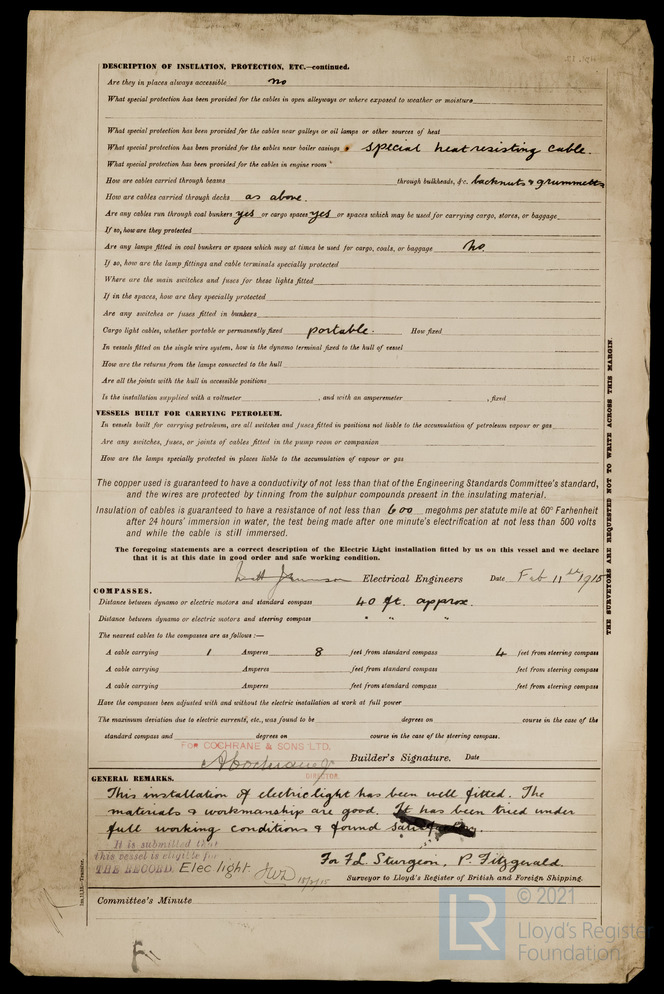 DESCRIPTION OF INSULATION, PROTECTION, ETC.—continued.
Are they in places always accessible no
What special protection has been provided for the cables in open alleyways or where exposed to weather or moisture
What special protection has been provided for the cables near galleys or oil lamps or other sources of heat
What special protection has been provided for the cables near boiler casings special heat resisting cable.
What special protection has been provided for the cables in engine room "
How are cables carried through beams through bulkheads, &c. backnuts & grummetts
How are cables carried through decks as above.
Are any cables run through coal bunkers yes or cargo spaces yes or spaces which may be used for carrying cargo, stores, or baggage
If so, how are they protected
Are any lamps fitted in coal bunkers or spaces which may at times be used for cargo, coals, or baggage no.
If so, how are the lamp fittings and cable terminals specially protected
Where are the main switches and fuses for these lights fitted
If in the spaces, how are they specially protected
Are any switches or fuses fitted in bunkers
Cargo light cables, whether portable or permanently fixed portable. How fixed
In vessels fitted on the single wire system, how is the dynamo terminal fixed to the hull of vessel
How are the returns from the lamps connected to the hull
Are all the joints with the hull in accessible positions
Is the installation supplied with a voltmeter , and with an amperemeter , fixed
VESSELS BUILT FOR CARRYING PETROLEUM.
In vessels built for carrying petroleum, are all switches and fuses fitted in positions not liable to the accumulation of petroleum vapour or gas
Are any switches, fuses, or joints of cables fitted in the pump room or companion
How are the lamps specially protected in places liable to the accumulation of vapour or gas
The copper used is guaranteed to have a conductivity of not less than that of the Engineering Standards Committee's standard,
and the wires are protected by tinning from the sulphur compounds present in the insulating material.
Insulation of cables is guaranteed to have a resistance of not less than 600 megohms per statute mile at 60° Farhenheit
after 24 hours' immersion in water, the test being made after one minute's electrification at not less than 500 volts
and while the cable is still immersed.
The foregoing statements are a correct description of the Electric Light installation fitted by us on this vessel and we declare
that it is at this date in good order and safe working condition.
Electrical Engineers Date Feb 11th 1915
COMPASSES.
Distance between dynamo or electric motors and standard compass 40 ft. approx.
Distance between dynamo or electric motors and steering compass " " "
The nearest cables to the compasses are as follows:—
A cable carrying 1 Amperes 8 feet from standard compass 4 feet from steering compass
A cable carrying Amperes feet from standard compass feet from steering compass
A cable carrying Amperes feet from standard compass feet from steering compass
Have the compasses been adjusted with and without the electric installation at work at full power
The maximum deviation due to electric currents, etc., was found to be degrees on course in the case of the
standard compass and degrees on course in the case of the steering compass.
For COCHRANE & SONS LTD.
Builder's Signature. Date
DIRECTOR.
GENERAL REMARKS.
This installation of electric light has been well fitted. The
materials & workmanship are good. It has been tried under
full working conditions & found
It is submitted that
this vessel is eligible for
THE RECORD. Elec light. 15/2/15
For F L Sturgeon, P. Fitzgerald.
Surveyor to Lloyd's Register of British and Foreign Shipping.
Committee's Minute
THE SURVEYORS ARE REQUESTED NOT TO WRITE ACROSS THIS MARGIN.
LR
© 2021
Lloyd's Register
Foundation